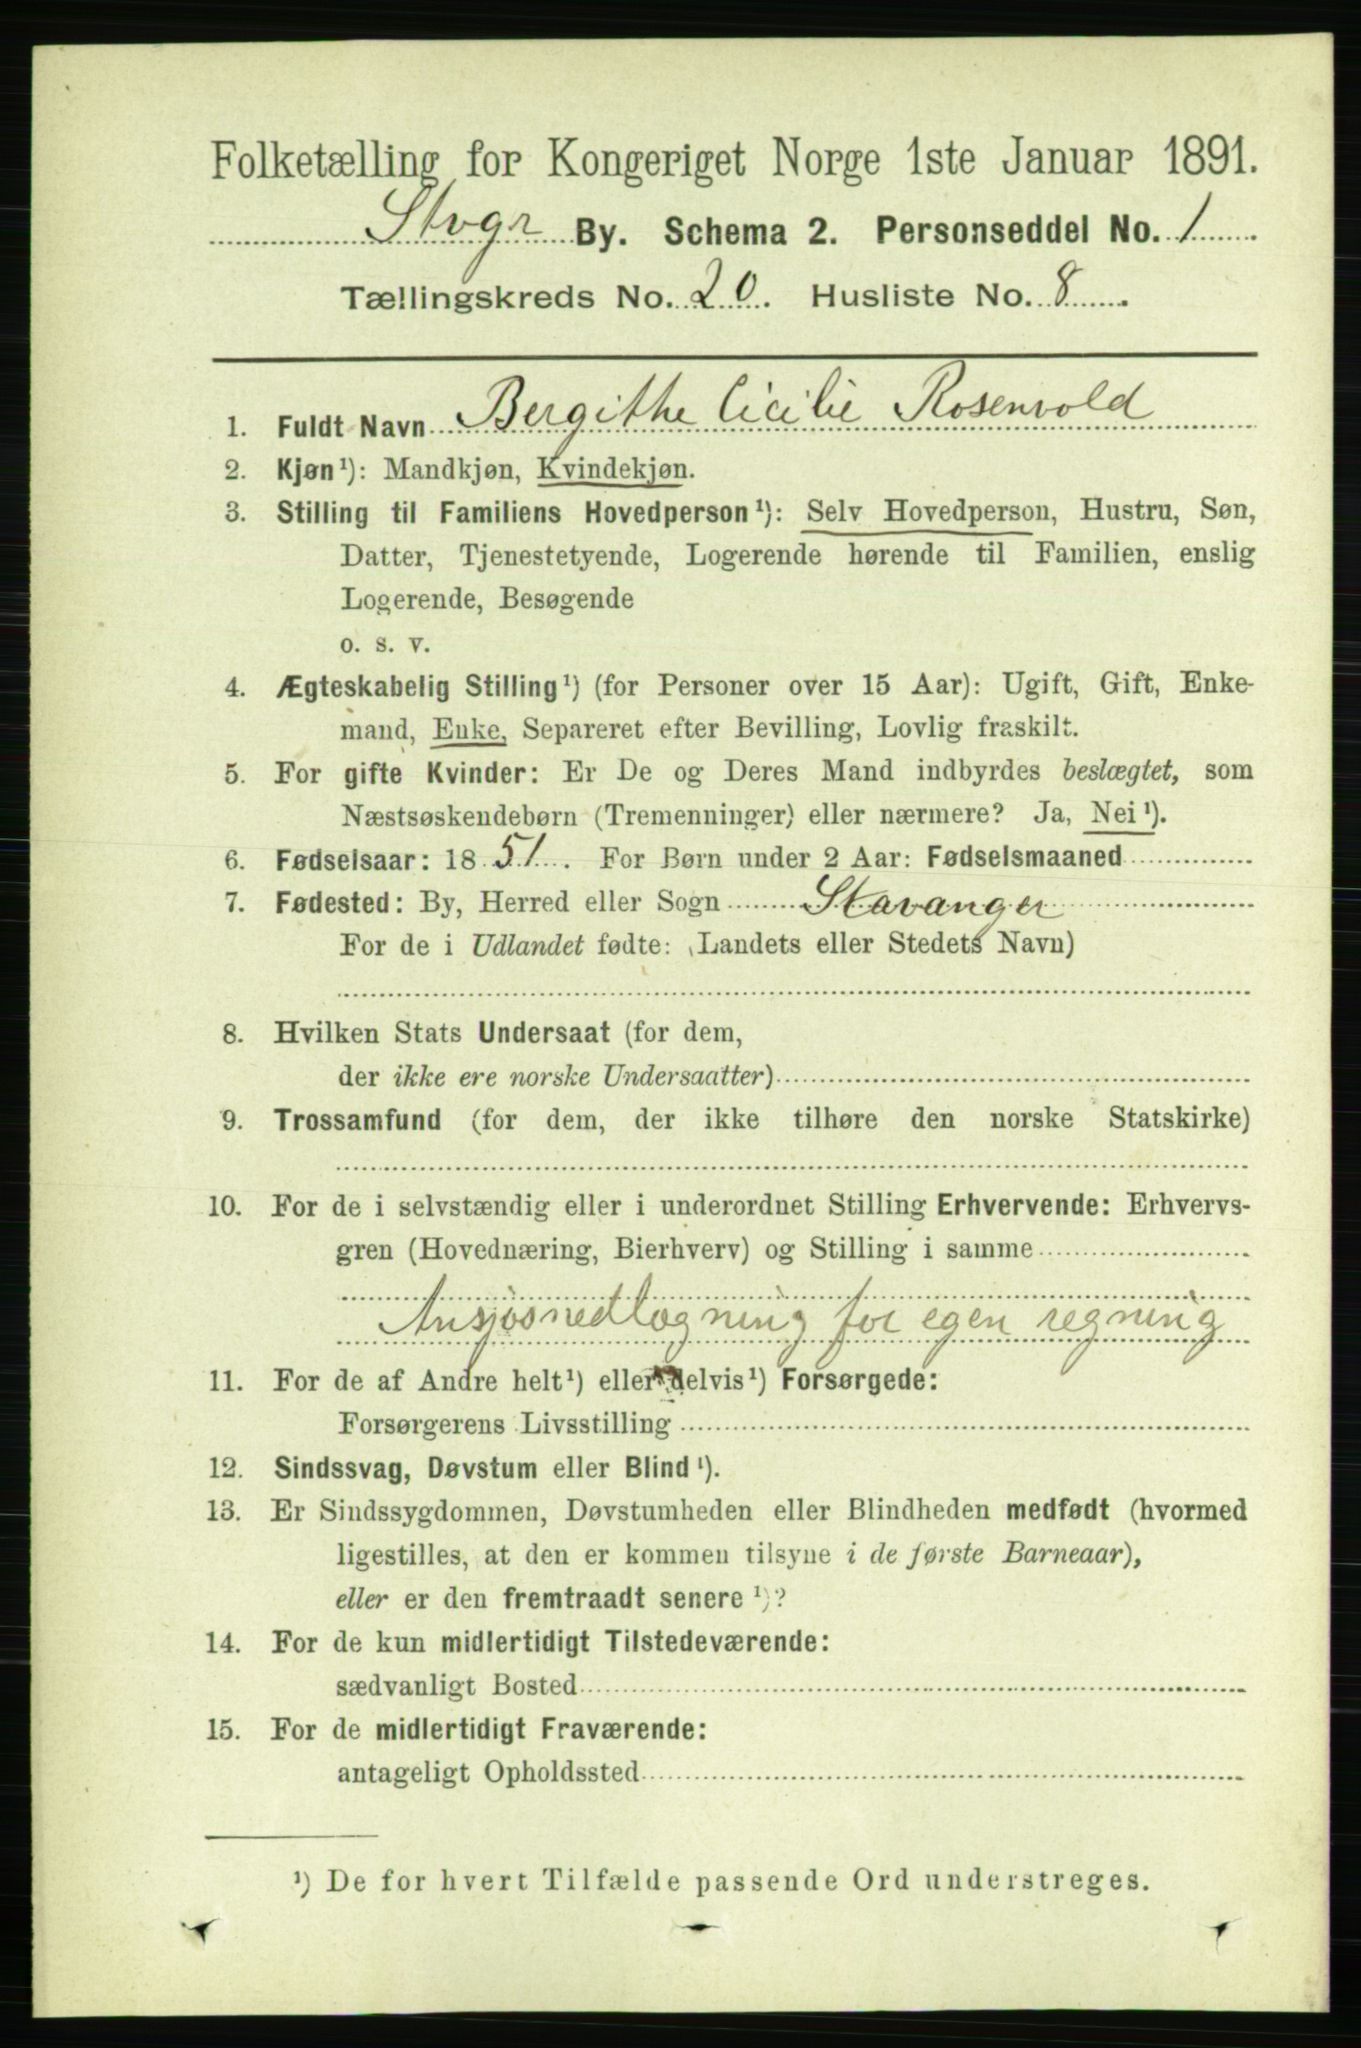 Folketælling for Kongeriget Norge 1ste Januar 1891.
Stvgr By. Schema 2. Personseddel No. 1
Tællingskreds No. 20. Husliste No. 8.
1. Fuldt Navn Bergithe Cicilie Rosenvold
2. Kjøn ¹): Mandkjøn, Kvindekjøn.
3. Stilling til Familiens Hovedperson ¹): Selv Hovedperson, Hustru, Søn,
Datter, Tjenestetyende, Logerende hørende til Familien, enslig
Logerende, Besøgende
o. s. v.
4. Ægteskabelig Stilling ¹) (for Personer over 15 Aar): Ugift, Gift, Enke-
mand, Enke, Separeret efter Bevilling, Lovlig fraskilt.
5. For gifte Kvinder: Er De og Deres Mand indbyrdes beslægtet, som
Næstsøskendebørn (Tremenninger) eller nærmere? Ja, Nei ¹).
6. Fødselsaar: 1851. For Børn under 2 Aar: Fødselsmaaned
7. Fødested: By, Herred eller Sogn Stavanger
For de i Udlandet fødte: (Landets eller Stedets Navn)
8. Hvilken Stats Undersaat (for dem,
der ikke ere norske Undersaatter)
9. Trossamfund (for dem, der ikke tilhøre den norske Statskirke)
10. For de i selvstændig eller i underordnet Stilling Erhvervende: Erhvervs-
gren (Hovednæring, Bierhverv) og Stilling i samme
Ansjosnedlægning for egen regning
11. For de af Andre helt ¹) eller delvis ¹) Forsørgede:
Forsørgerens Livsstilling
12. Sindssvag, Døvstum eller Blind ¹).
13. Er Sindssygdommen, Døvstumheden eller Blindheden medfødt (hvormed
ligestilles, at den er kommen tilsyne i de første Barneaar),
eller er den fremtraadt senere ¹)?
14. For de kun midlertidigt Tilstedeværende:
sædvanligt Bosted
15. For de midlertidigt Fraværende:
antageligt Opholdssted
¹) De for hvert Tilfælde passende Ord understreges.